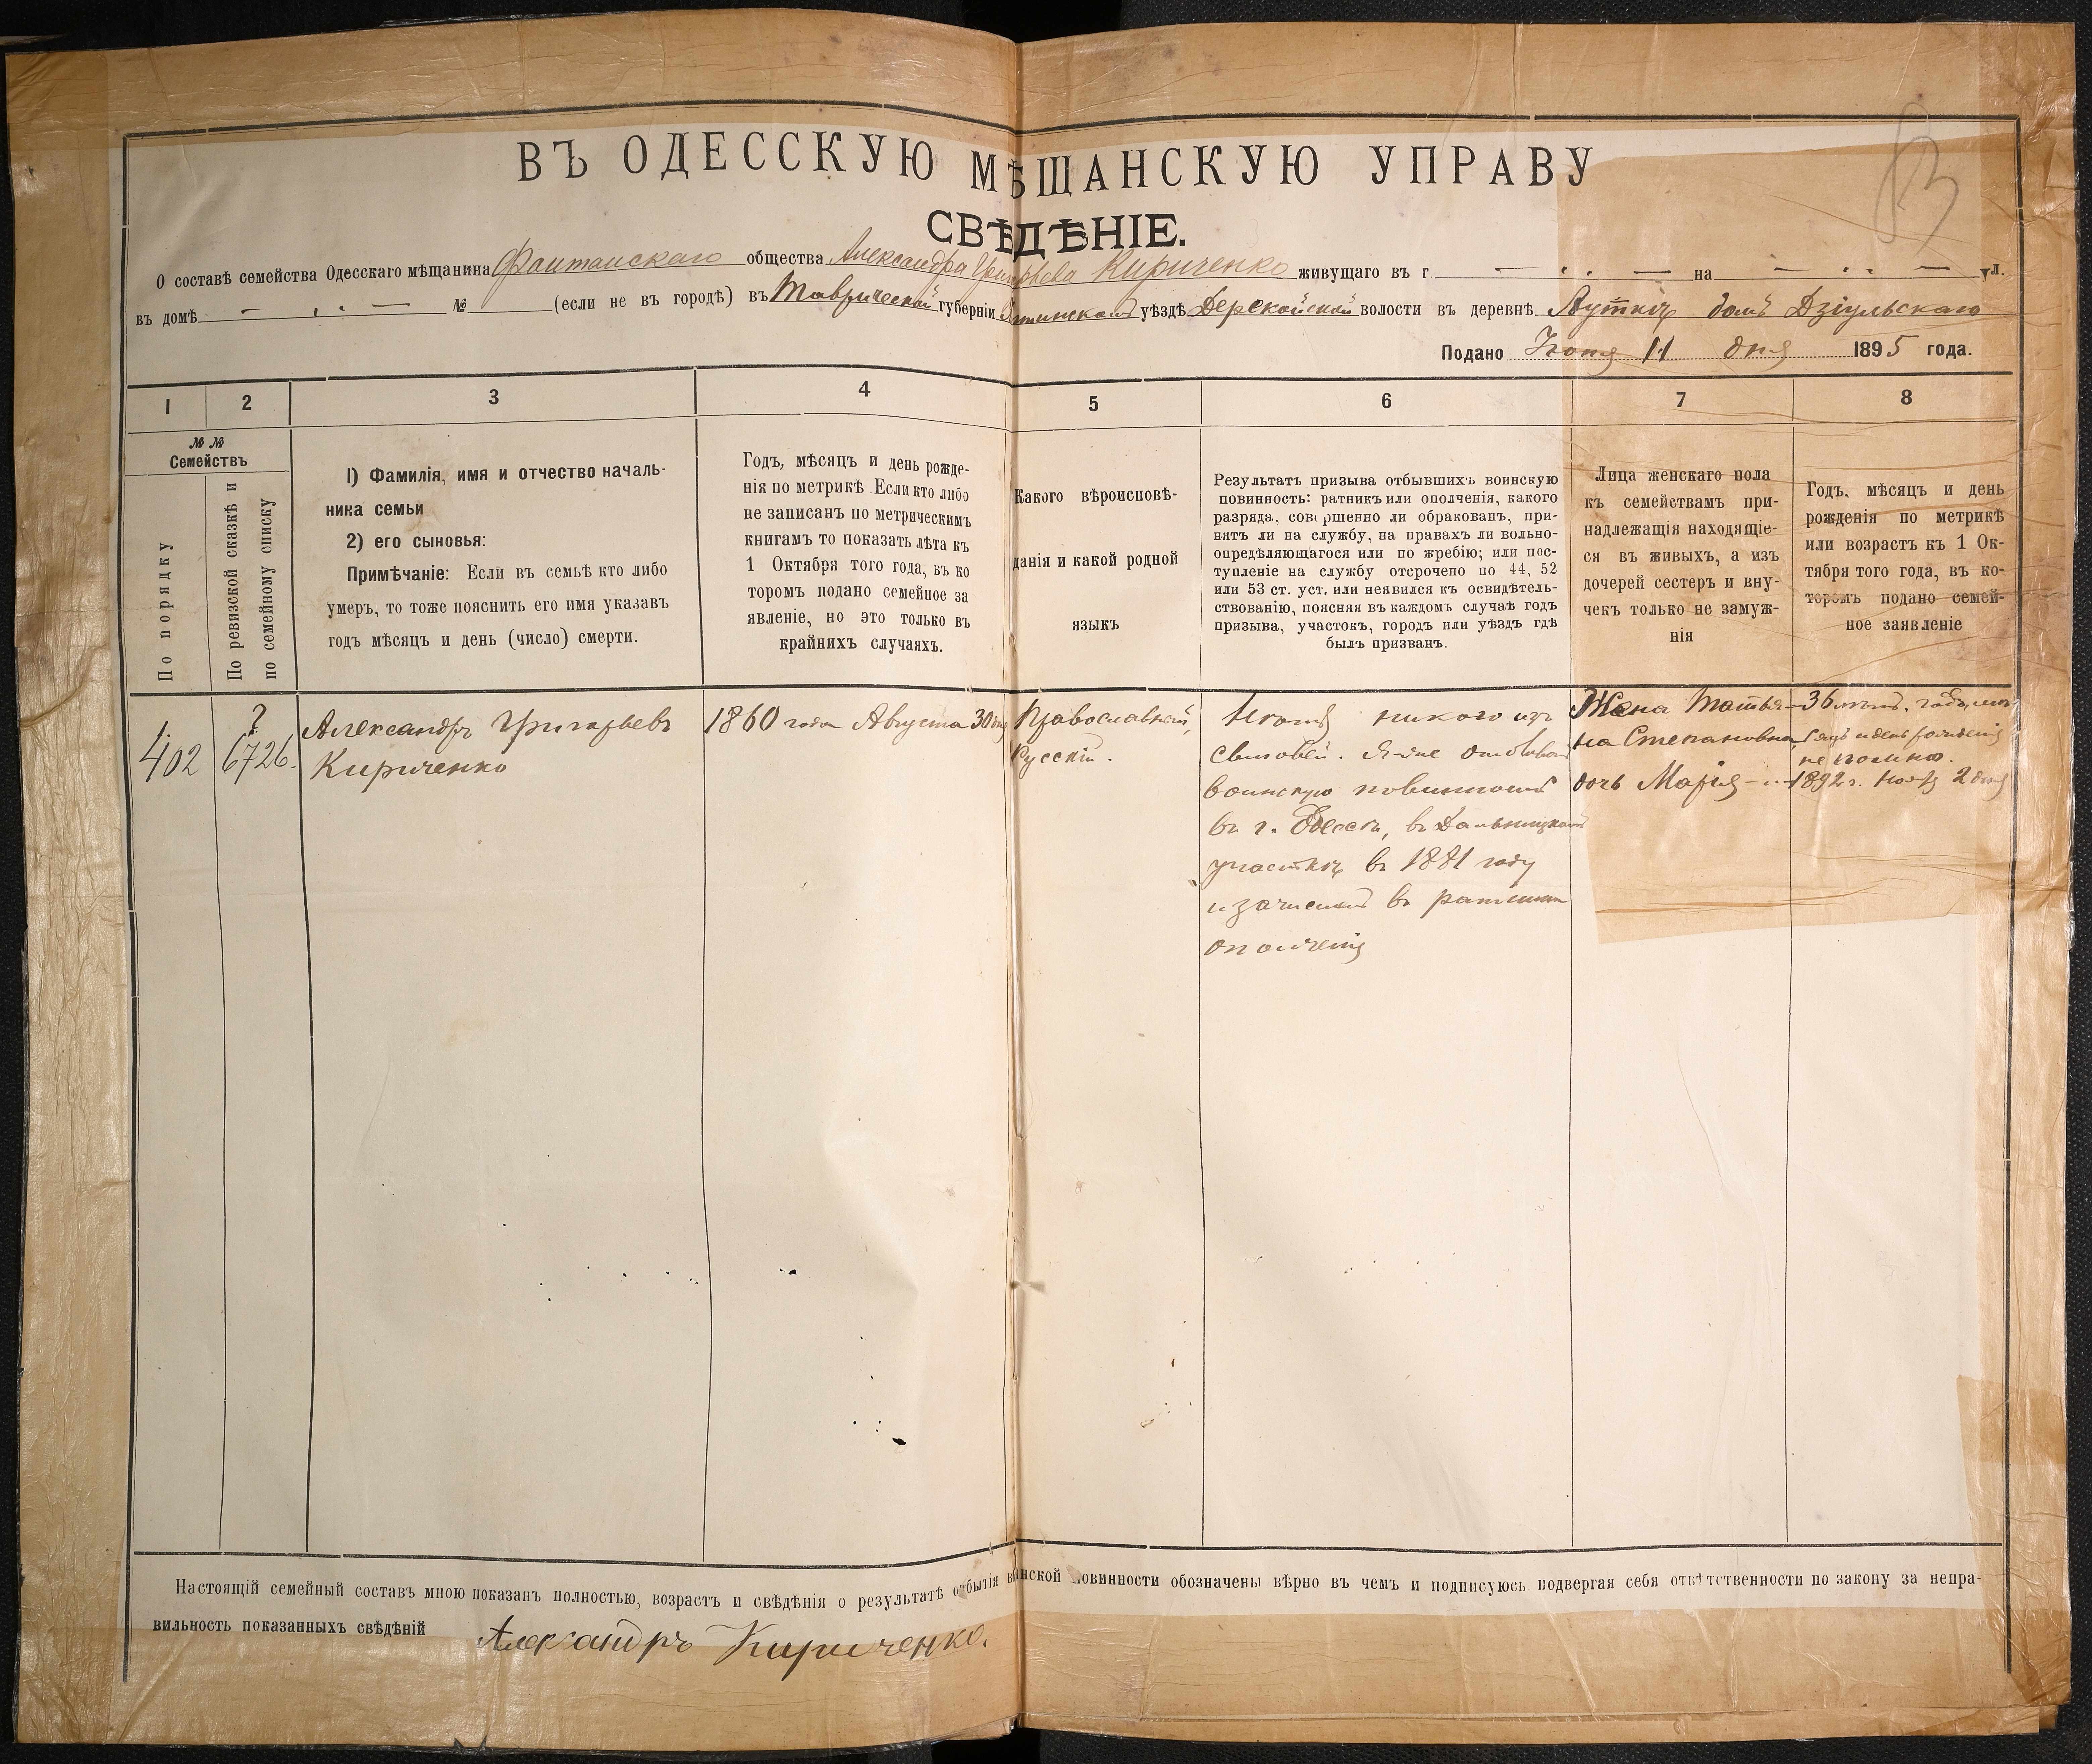 ВЪ ОДЕССКУЮ МѢЩАНСКУЮ УПРАВУ
СВѢДѢНІЕ.
О составѣ семейства Одесскаго мѣщанина Фантанскаго общества Александра Григорьева Кириченко живущаго въ г. — . . — на — . . — ул.
въ домѣ — . . — № (если не въ городѣ) въ Таврической губерніи Ялтинскомъ уѣздѣ Дерекойской волости въ деревнѣ Ауткѣ домъ Дзіульскаго
Подано 11 дня 1895 года.
1 2 3 4 5 6 7 8
№ №
Семействъ
По порядку
По ревизской сказкѣ и
по семейному списку
1) Фамилія, имя и отчество началь-
ника семьи
2) его сыновья:
Примѣчаніе: Если въ семьѣ кто либо
умеръ, то тоже пояснить его имя указавъ
годъ мѣсяцъ и день (число) смерти.
Годъ, мѣсяцъ и день рожде-
нія по метрикѣ. Если кто либо
не записанъ по метрическимъ
книгамъ то показать лѣта къ
1 Октября того года, въ ко
торомъ подано семейное за
явленіе, но это только въ
крайнихъ случаяхъ.
Какого вѣроисповѣ-
данія и какой родной
языкъ
Результатъ призыва отбывшихъ воинскую
повинность: ратникъ или ополченія, какого
разряда, совершенно ли обракованъ, при-
нятъ ли на службу, на правахъ ли вольно-
опредѣляющагося или по жребію; или пос-
тупленіе на службу отсрочено по 44, 52
или 53 ст. уст. или неявился къ освидѣтель-
ствованію, поясняя въ каждомъ случаѣ годъ
призыва, участокъ, городъ или уѣздъ гдѣ
былъ призванъ.
Лица женскаго пола
къ семействамъ при-
надлежащія находящіе-
ся въ живыхъ, а изъ
дочерей сестеръ и вну-
чекъ только не замуж-
нія
Годъ, мѣсяцъ и день
рожденія по метрикѣ
или возрастъ къ 1 Ок-
тября того года, въ ко-
торомъ подано семей-
ное заявленіе
402
?
6726.
Александръ Григорьевъ
Кириченко
1860 года Августа 30 дня
Православный,
Русскій.
никого изъ
сыновей. Я-же отбывалъ
воинскую повинность
въ г. Одессѣ, въ Дальницкомъ
участкѣ въ 1881 году
и зачисленъ въ ратники
ополченія
Жена Татья-
на Степановна
дочь Марія
36 лѣтъ. годъ, мѣ-
сяцъ и день рожденія
не помню.
1892 г. 2 дня
Настоящій семейный составъ мною показанъ полностью, возрастъ и свѣдѣнія о результатѣ отбытія воинской повинности обозначены вѣрно въ чемъ и подписуюсь подвергая себя отвѣтственности по закону за непра-
вильность показанныхъ свѣдѣній Александръ Кириченко.